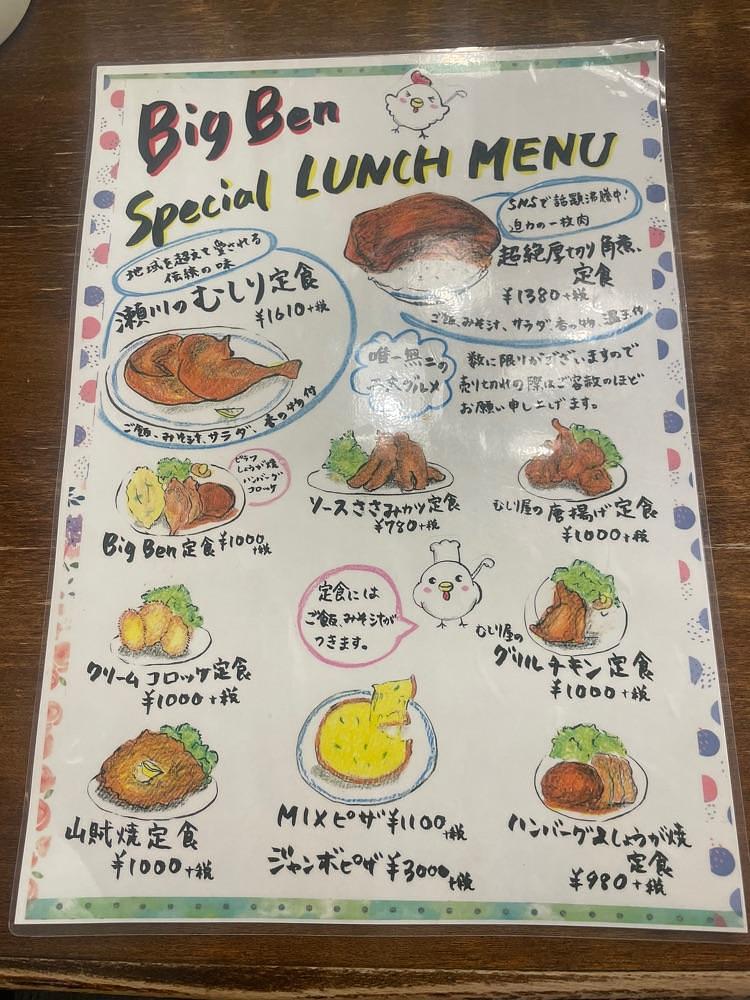 Big Ben
Special LUNCH MENU
地域を超えて愛される
伝統の味
瀬川のむしり定食
¥1610+税
ご飯、みそ汁、サラダ、香の物付
SNSで話題沸騰中!
迫力の一枚肉
超絶厚切り角煮、
定食
¥1380+税
ご飯、みそ汁、サラダ、香の物、温玉付
唯一無二の
グルメ
数に限りがございますので
売り切れの際はご容赦のほど
お願い申し上げます。
ピラフ
しょうが焼
ハンバーグ
コロッケ
Big Ben定食¥1000
+税
ソースささみカツ定食
¥780+税
むしり屋の唐揚げ定食
¥1000+税
クリームコロッケ定食
¥1000+税
定食には
ご飯、みそ汁が
つきます。
むしり屋の
グリルチキン定食
¥1000+税
山賊焼定食
¥1000+税
MIXピザ¥1100+税
ジャンボピザ¥3000+税
ハンバーグ&しょうが焼
定食
¥980+税